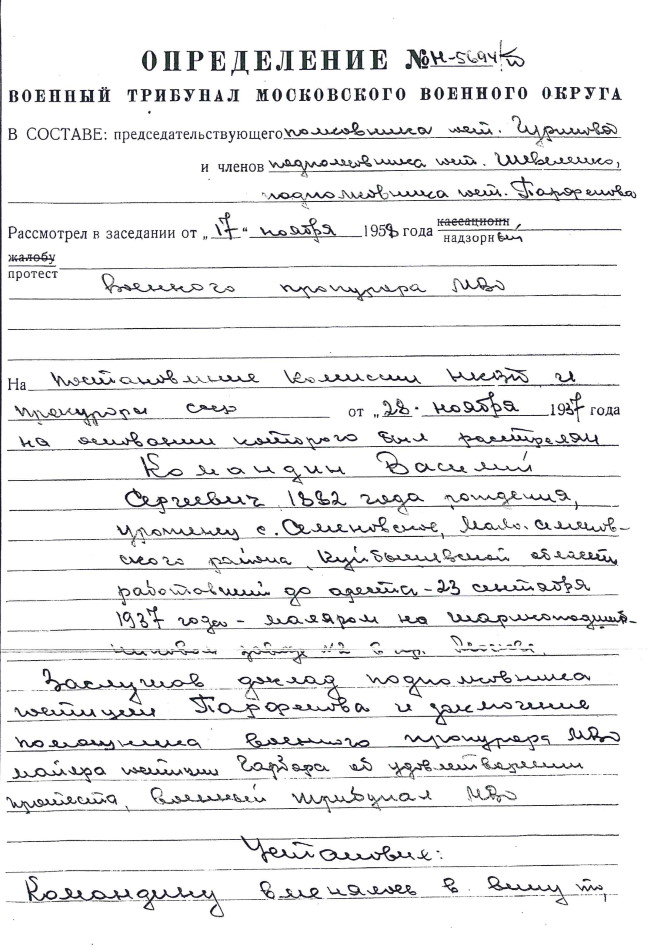 ОПРЕДЕЛЕНИЕ № Н-5694/
ВОЕННЫЙ ТРИБУНАЛ МОСКОВСКОГО ВОЕННОГО ОКРУГА
В СОСТАВЕ: председательствующего полковника юст. Гуринова
и членов подполковника юст. Шевеленко,
подполковника юст. Парфенова
Рассмотрел в заседании от „17" ноября 1958 года кассационн
надзорный
жалобу
протест
Военного прокурора МВО
На постановление Комиссии НКВД и
прокурора ссср от „28. ноября 1937 года
на основании которого был расстрелян
Командин Василий
Сергеевич 1882 года рождения,
уроженец с. Семеновское, Мало. семенов-
ского района, Куйбышевской области
работавший до ареста - 23 сентября
1937 года - маляром на шарикоподшип-
никовом заводе №2 в гор.
Заслушав доклад подполковника
юстиции Парфенова и заключение
помощника военного прокурора МВО
майора юстиции Гарбора об удовлетворении
протеста, военный трибунал МВО
Установил:
Командину вменялось в вину то,